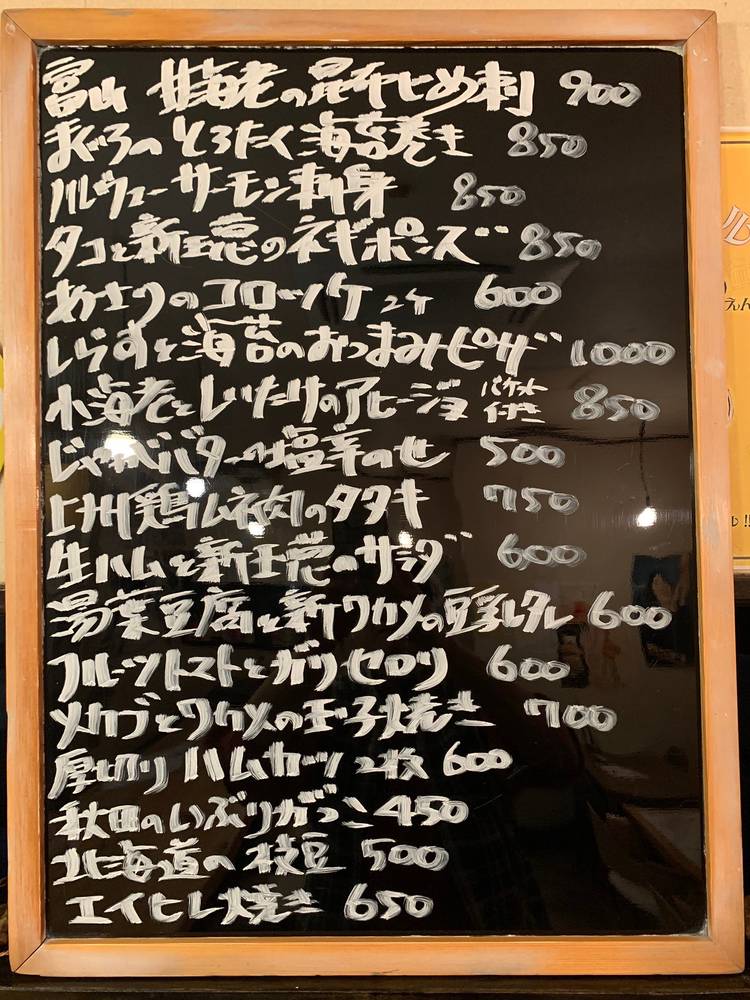 富山 甘海老の昆布〆め刺 900
まぐろのとろたく海苔巻き 850
ノルウェーサーモン刺身 850
タコと新玉葱のネギポンズ 850
あさりのコロッケ 2ケ 600
しらすと海苔のおつまみピザ 1000
小海老としいたけのアヒージョ バケット付き 850
じゃがバター塩辛のせ 500
上州鶏ムネ肉のタタキ 750
生ハムと新玉葱のサラダ 600
湯葉豆腐と新ワカメの豆乳タレ 600
フルーツトマトとガリセロリ 600
メカブとワカメの玉子焼き 700
厚切りハムカツ 2枚 600
秋田のいぶりがっこ 450
北海道の枝豆 500
エイヒレ焼き 650